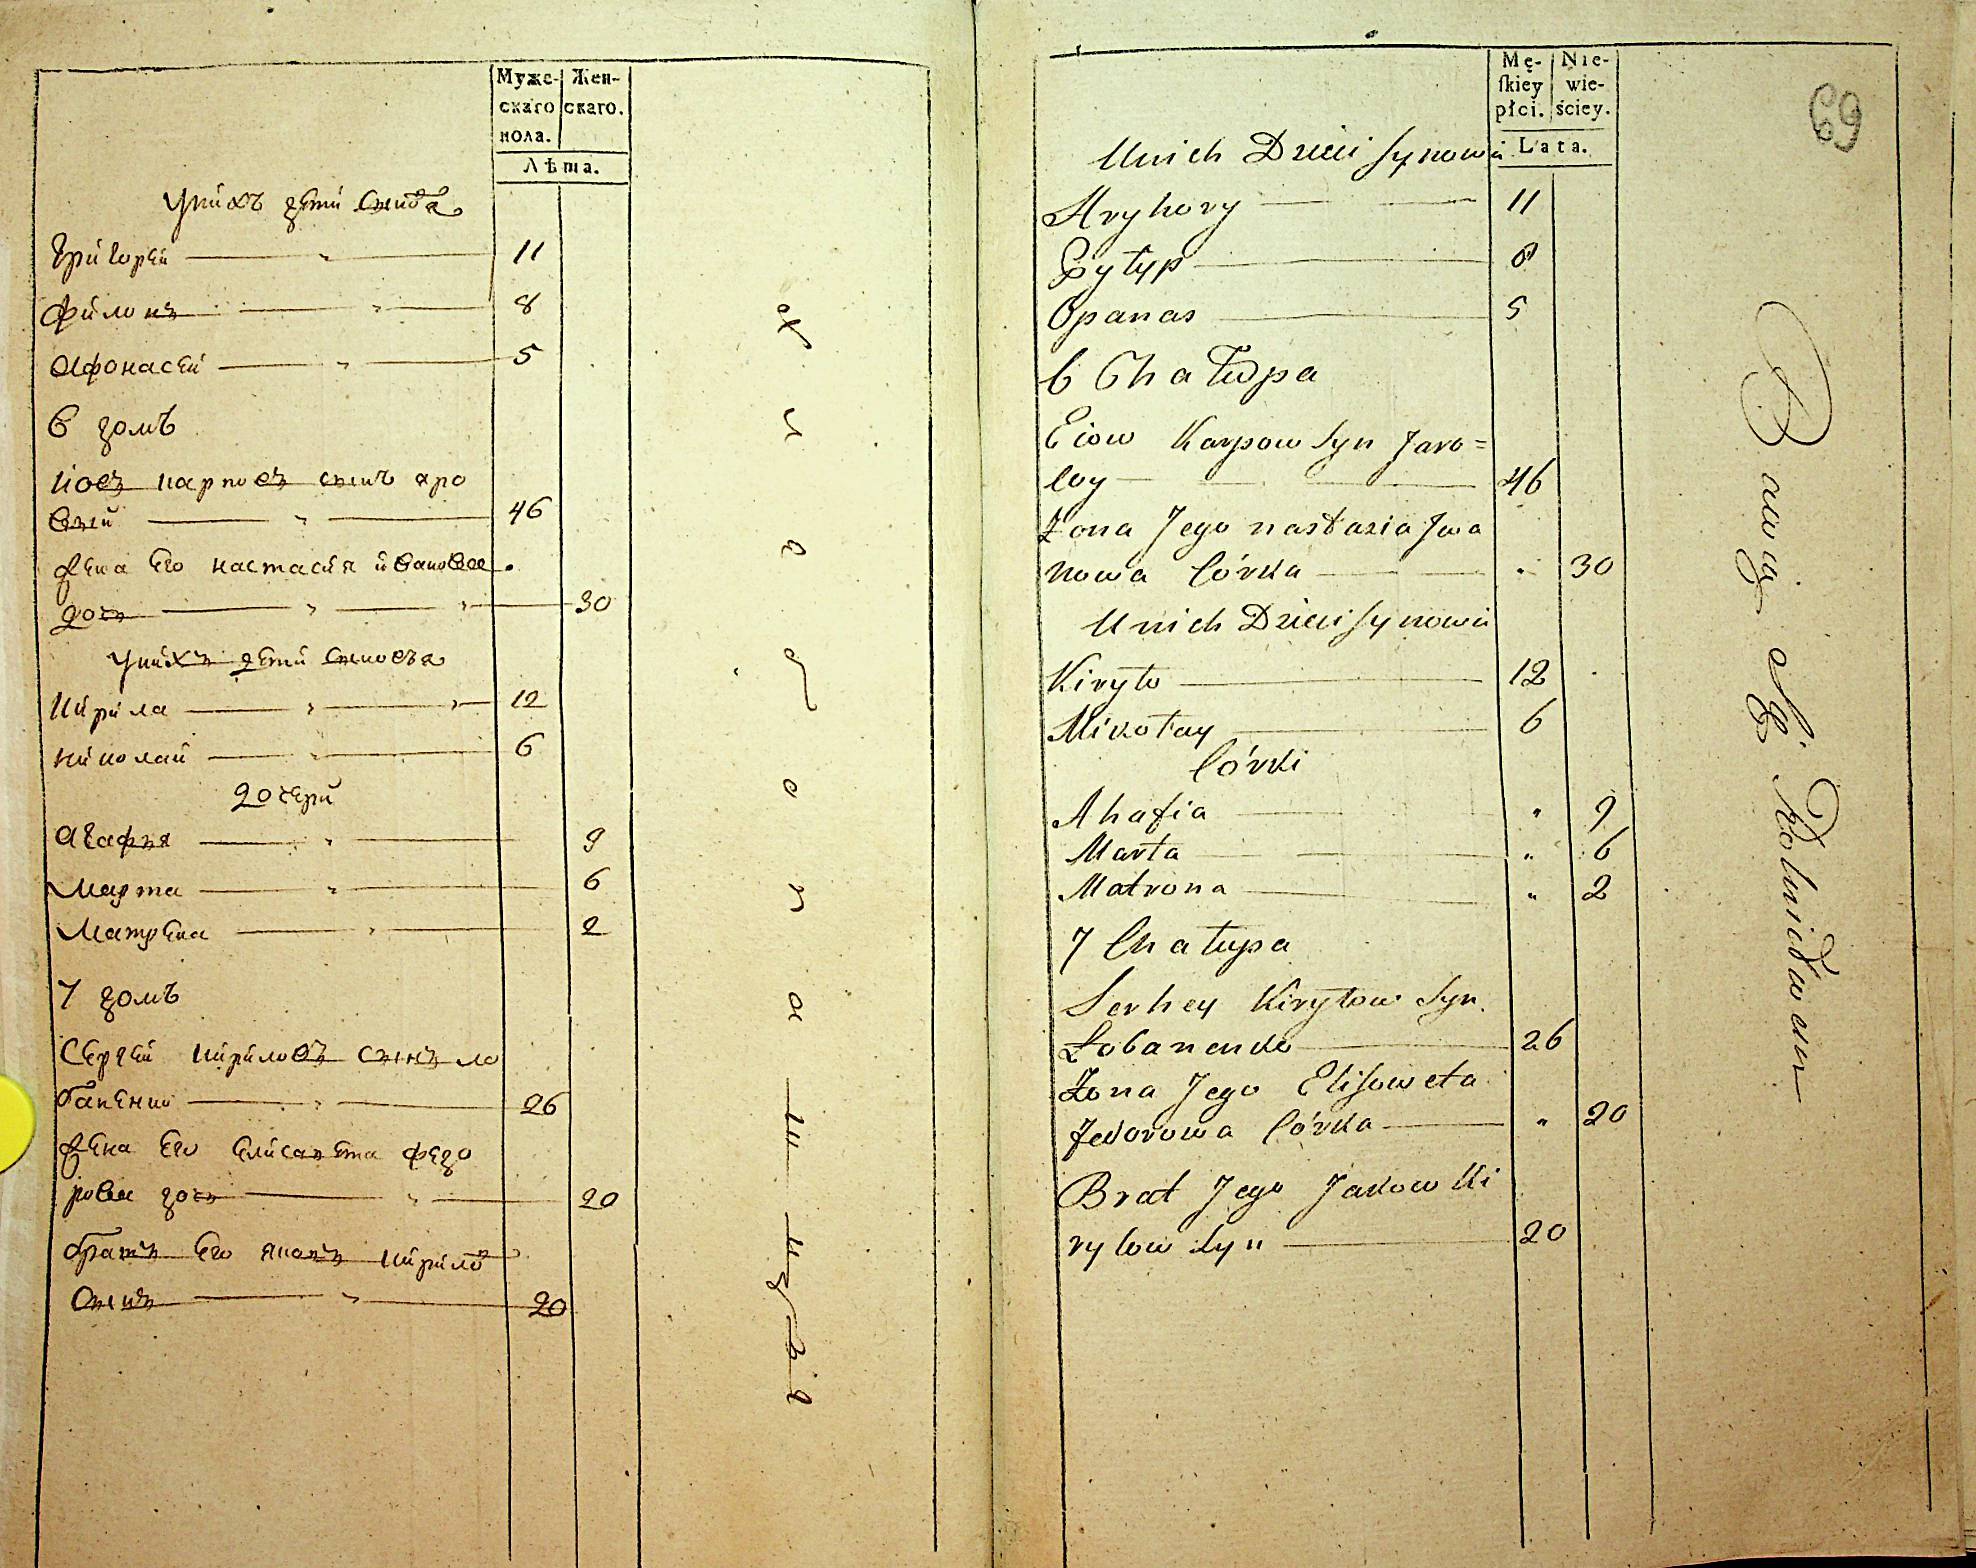 Муже-
скаго
пола.
Жен-
скаго.
Лѣта.
у нихъ дети сынов̾я
Григорей 11
Филонъ 8
Афонасей 5
6 домъ
Иовъ карповъ сынъ яро
вый 46
жена Его настасия ивановна
дочь 30
у нихъ дети сыновъя
Кирила 12
николай 6
дочери
Агафия 9
Марта 6
Матрена 2
7 домъ
Сергей кириловъ сынъ ло
баненко 26
жена Его Елисавета федо
рова дочь 20
братъ Его яковъ кирило
сынъ 20
Mę-
skiey
płci.
Nie-
wie-
ściey.
Lata.
69
Unich Dzieci Synowii
Hryhory 11
8
Opanas 5
6 Chałupa
Eiow Karpow Syn Jaro=
woy 46
Zona Jego nastazia Jwa
nowa Córka 30
Unich Dzieci Synowii
Kiryło 12
Mikołay 6
Córki
Ahafia 9
Marta 6
Matrona 2
7 Chałupa
Serhey Kiryłow Syn
Łobanenko 26
Zona Jego Elisoweta
Fedorowa Córka 20
Brat Jego Jakow Ki
ryłow Syn 20
Bawią się Rolnictwem